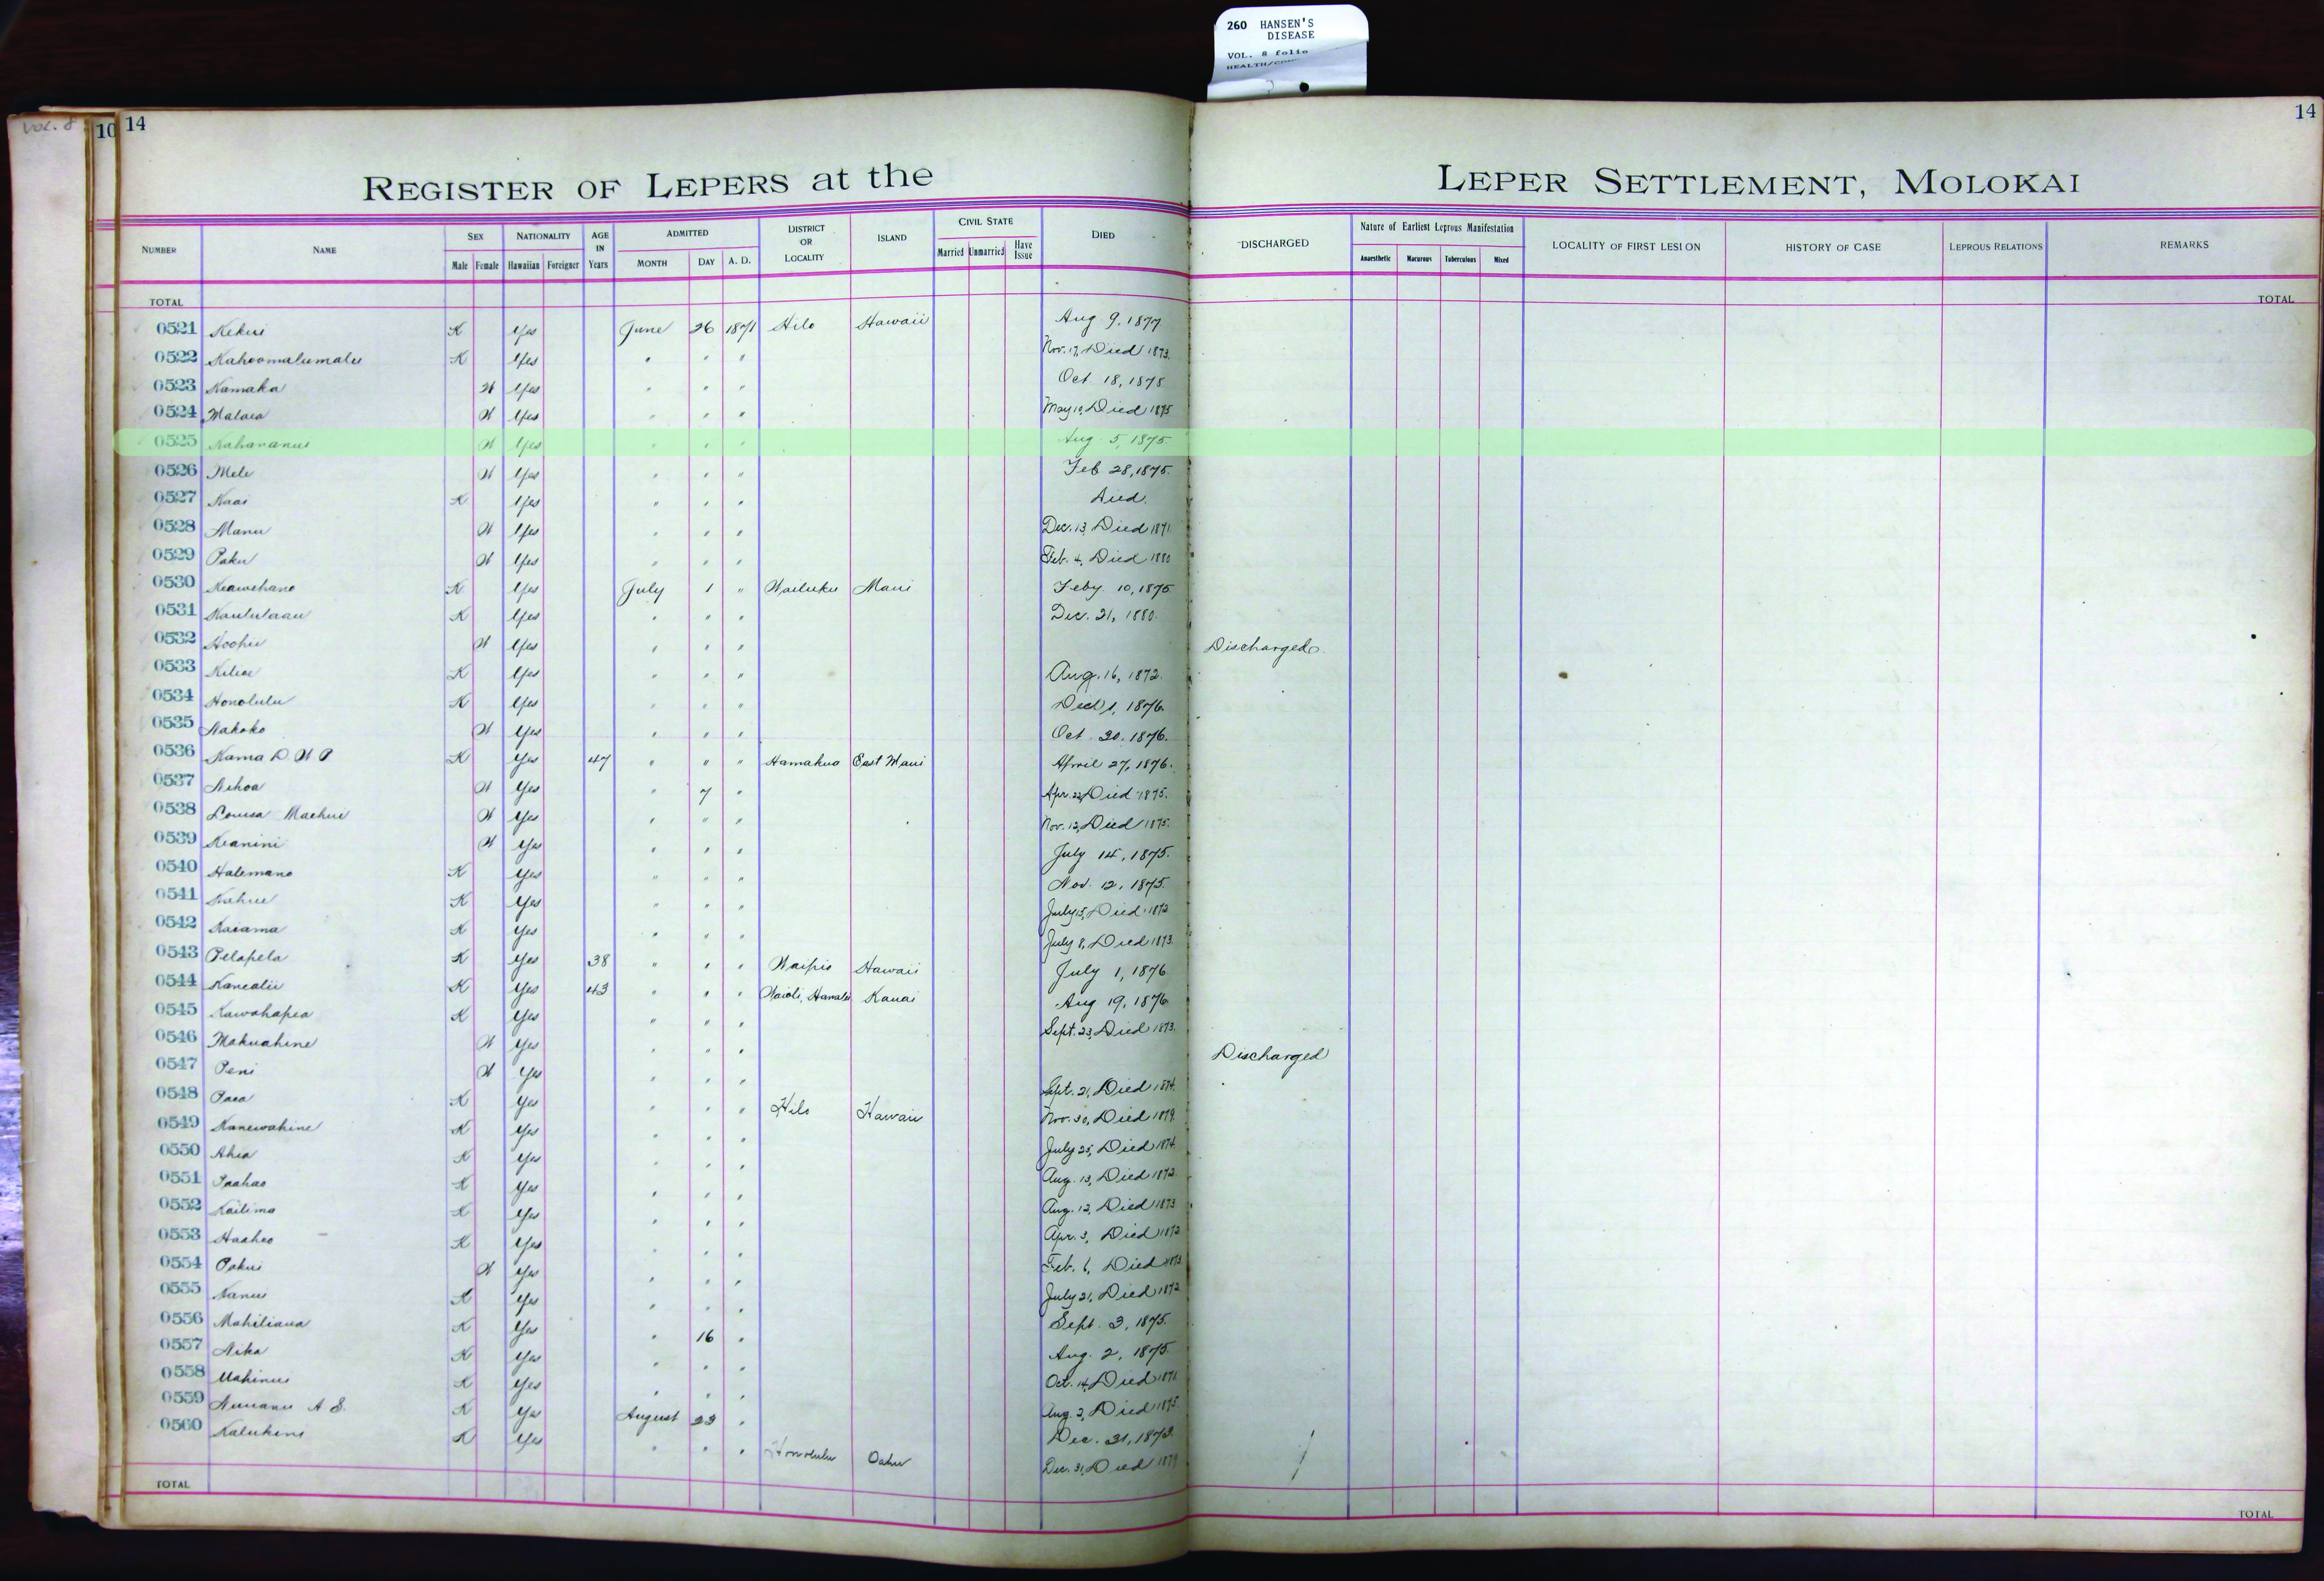 260 HANSEN'S
DISEASE
VOL. 8 folio
VOL. 8
10 14
14
REGISTER OF LEPERS at the LEPER SETTLEMENT, MOLOKAI
NUMBER NAME SEX Male Female NATIONALITY Hawaiian Foreigner AGE IN Years ADMITTED MONTH DAY A. D. DISTRICT OR LOCALITY ISLAND CIVIL STATE Married Unmarried Have Issue DIED DISCHARGED Nature of Earliest Leprous Manifestation Anaesthetic Macurous Tuberculous Mixed LOCALITY OF FIRST LESION HISTORY OF CASE LEPROUS RELATIONS REMARKS
TOTAL TOTAL
0521 Kekui K Yes June 26 1871 Hilo Hawaii Aug 9, 1877
0522 Kahoomalumalu K Yes " " " Nov. 17, Died 1873.
0523 Kamaka W Yes " " " Oct 18, 1875
0524 Malaea W Yes " " " May 10, Died 1875
0525 W Yes " " " Aug 5, 1875.
0526 Mele W Yes " " " Feb 28, 1875.
0527 Kaai K Yes " " " Died.
0528 Manu W Yes " " " Dec. 13, Died 1871
0529 Paku W Yes " " " Feb. 4, Died 1880
0530 Keawehano K Yes July 1 " Wailuku Maui Feby 10, 1875
0531 Kaululaau K Yes " " " Dec. 21, 1880.
0532 Hoohii W Yes " " " Discharged.
0533 Kiliae K Yes " " " Aug. 16, 1872.
0534 Honolulu K Yes " " " 1, 1876.
0535 Nakoko W Yes " " " Oct. 20, 1876.
0536 Kama D. W P K Yes 47 " " " Hamakua East Maui April 27, 1876.
0537 Nihoa W Yes " 7 " Apr. 22, Died 1875.
0538 Louisa Maehui W Yes " " " Nov. 12, Died 1875.
0539 Keanini W Yes " " " July 14, 1875.
0540 Halemano K Yes " " " Nov. 12, 1875.
0541 Kahue K Yes " " " July 15, Died 1872
0542 Kaiama K Yes " " " July 8, Died 1873.
0543 Pelapela K Yes 38 " " " Waipio Hawaii July 1, 1876
0544 Kanealii K Yes 43 " " " Waioli, Hanalei Kauai Aug 19, 1876
0545 Kawahapea K Yes " " " Sept. 23, Died 1873.
0546 Makuahine W Yes " " " Discharged
0547 Peni W Yes " " " Sept. 21, Died 1874.
0548 Paea K Yes " " " Hilo Hawaii Nov. 30, Died 1879.
0549 Kanewahine K Yes " " " July 25, Died 1874.
0550 Ahia K Yes " " " Aug. 13, Died 1872.
0551 Paahao K Yes " " " Aug. 12, Died 1873
0552 Kailima K Yes " " " Apr. 3, Died 1872
0553 Haaheo K Yes " " " Feb. 6, Died 1873
0554 Pakui W Yes " " " July 21, Died 1872
0555 Nanui K Yes " " " Sept. 3, 1875.
0556 Mahiliaua K Yes " 16 " Aug. 2, 1875.
0557 Nika K Yes " " " Oct. 14, Died 1871
0558 Mahinui K Yes " " " Aug. 2, Died 1875.
0559 Nuuanu A S. K Yes August 23 " Dec. 31, 1873.
0560 Kalukini K Yes " " " Honolulu Oahu Dec. 31, Died 1879
TOTAL TOTAL